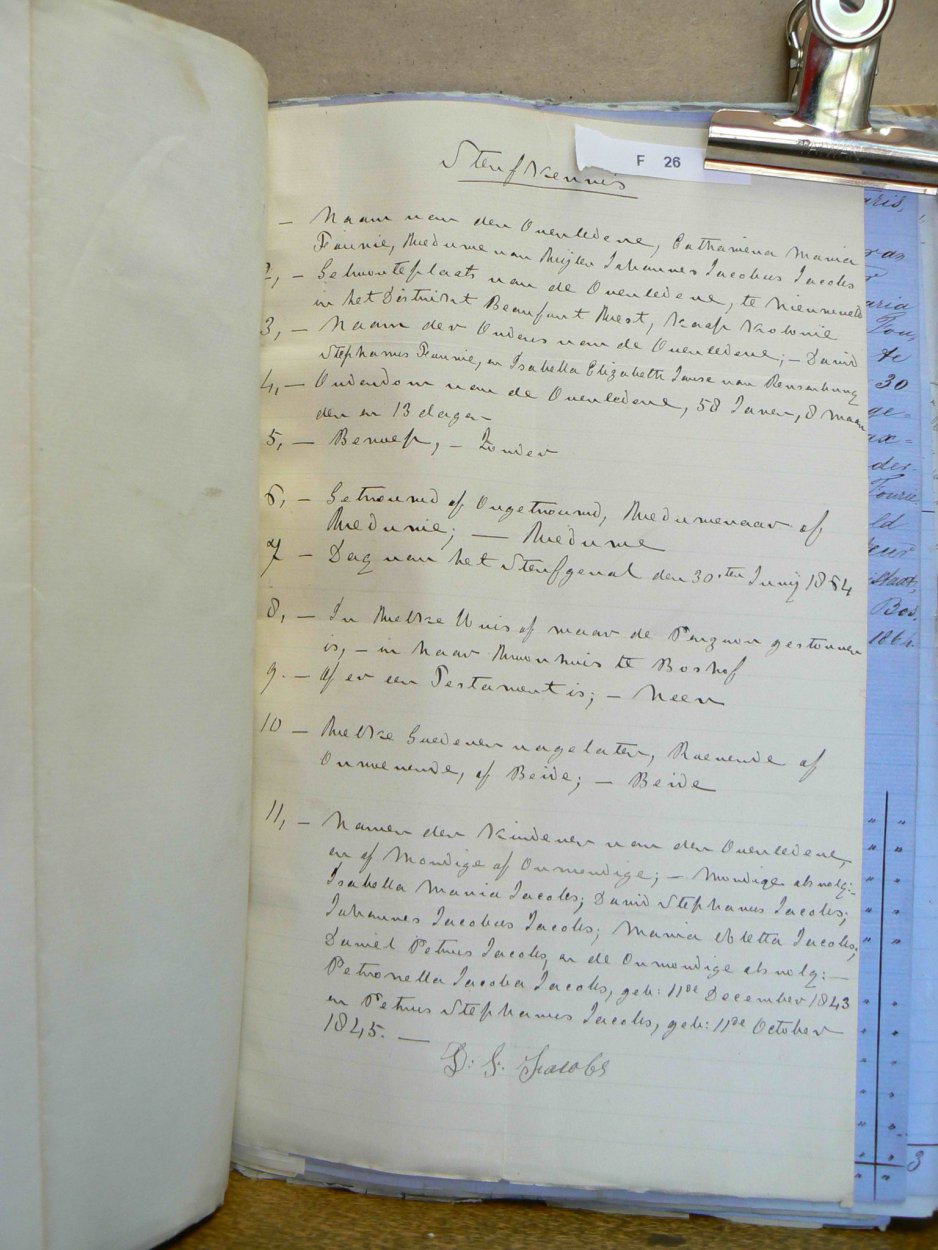 F 26
Sterfkennis
– Naam van den Overledene, Catharina Maria
Fourie, Weduwe van Wijlen Johannes Jacobus Jacobs
2, – Geboorteplaats van de Overledene, te Nieuweveld
in het Distrikt Beaufort West, Kaap Kolonie
3, – Naam der Ouders van de Overledene; – David
Stephanus Fourie, en Isabella Elizabeth Janse van Rensenburg
4, – Ouderdom van de Overledene, 58 Jaren, 8 maan
den en 13 dage –
5, – Beroep, – Zonder
6, – Getrouwd of Ongetrouwd, Weduwenaar of
Weduwie; – Weduwe
7 – Dag van het Sterfgeval den 30sten Junij 1864
8, – In Welke Huis of waar de Perzoon gestorven
is, – in haar Woonhuis te Boshof
9. – Of er een Testament is; – Neen
10 – Welke Goederen nagelaten, Roerende of
Onroerende, of Beide; – Beide
11, – Namen der Kinderen van den Overledene,
en of Mondige of Onmondige; – Mondige als volg:–
Isabella Maria Jacobs; David Stephanus Jacobs;
Johannes Jacobus Jacobs; Maria Aletta Jacobs;
Daniel Petrus Jacobs, en de Onmondige als volg: –
Petronella Jacoba Jacobs, geb: 11de December 1843
en Petrus Stephanus Jacobs, geb: 11de October
1845. –
D. S. Jacobs
aris,
aria
te
30
ge=
ax=
der
Fourie
ld
Staat,
Bos,
1864
3